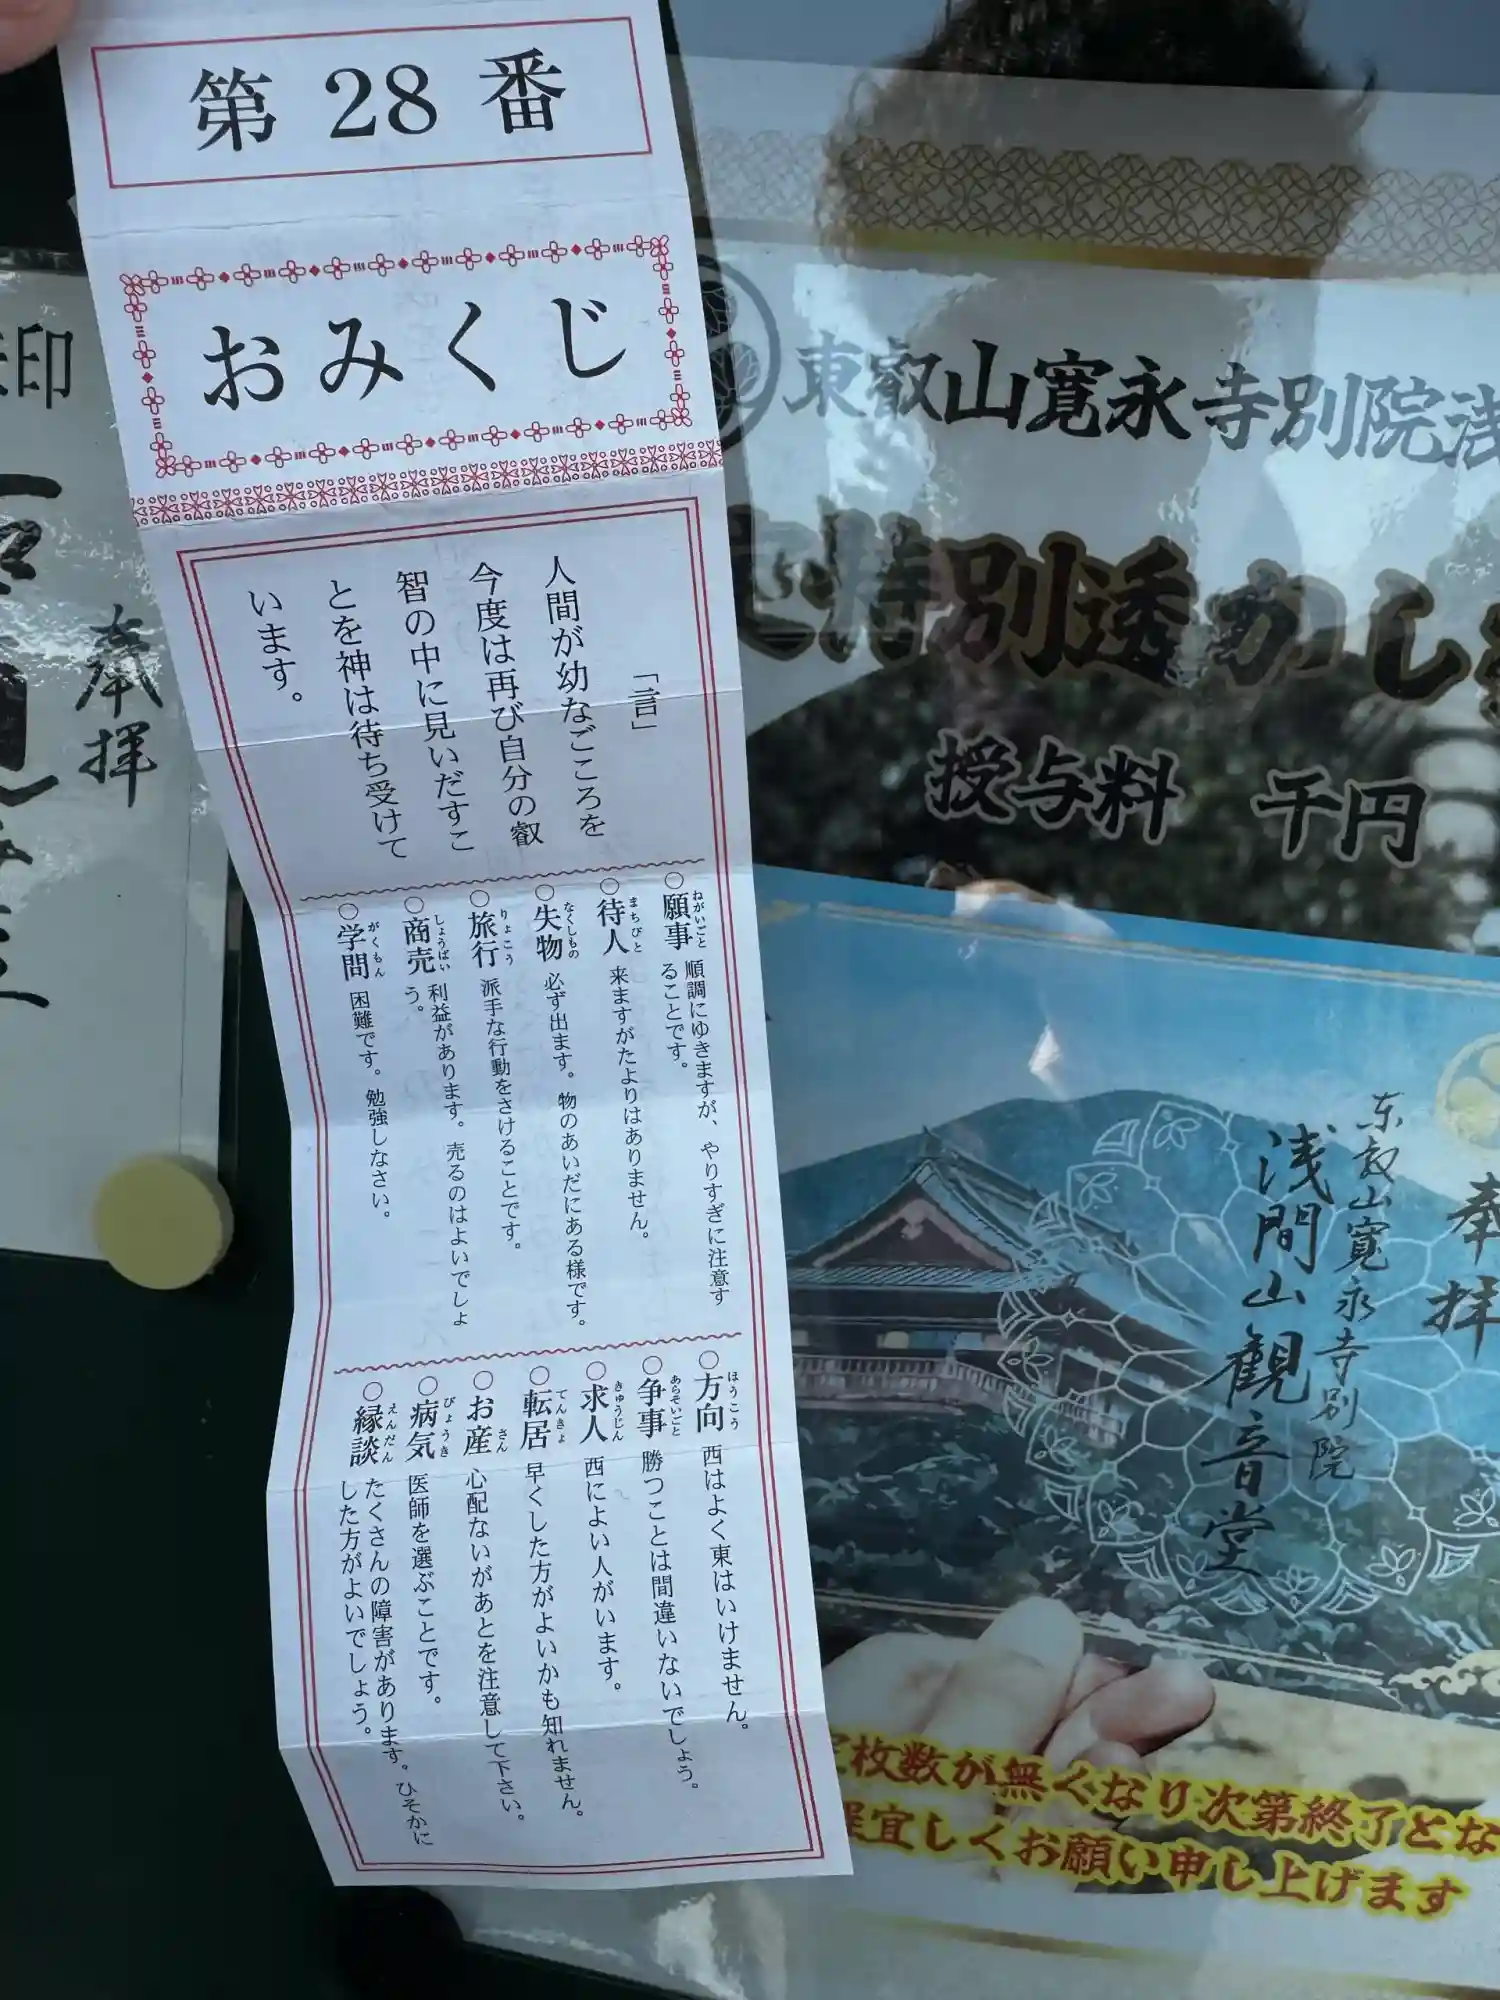 第28番
おみくじ
「言」
人間が幼なごころを
今度は再び自分の叡
智の中に見いだすこ
とを神は待ち受けて
います。
○願事 順調にゆきますが、やりすぎに注意す
ねがいごと
ることです。
○待人 来ますがたよりはありません。
まちびと
○失物 必ず出ます。物のあいだにある様です。
なくしもの
○旅行 派手な行動をさけることです。
りょこう
○商売 利益があります。売るのはよいでしょ
しょうばい
う。
○学問 困難です。勉強しなさい。
がくもん
○方向 西はよく東はいけません。
ほうこう
○争事 勝つことは間違いないでしょう。
あらそいごと
○求人 西によい人がいます。
きゅうじん
○転居 早くした方がよいかも知れません。
てんきょ
○お産 心配ないがあとを注意して下さい。
さん
○病気 医師を選ぶことです。
びょうき
○縁談 たくさんの障害があります。ひそかに
えんだん
した方がよいでしょう。
東叡山寛永寺別院浅
特別透かし
授与料 千円
奉拝
东叡山寛永寺別院
浅間山観音堂
枚数が無くなり次第終了とな
宜しくお願い申し上げます
印
奉拝